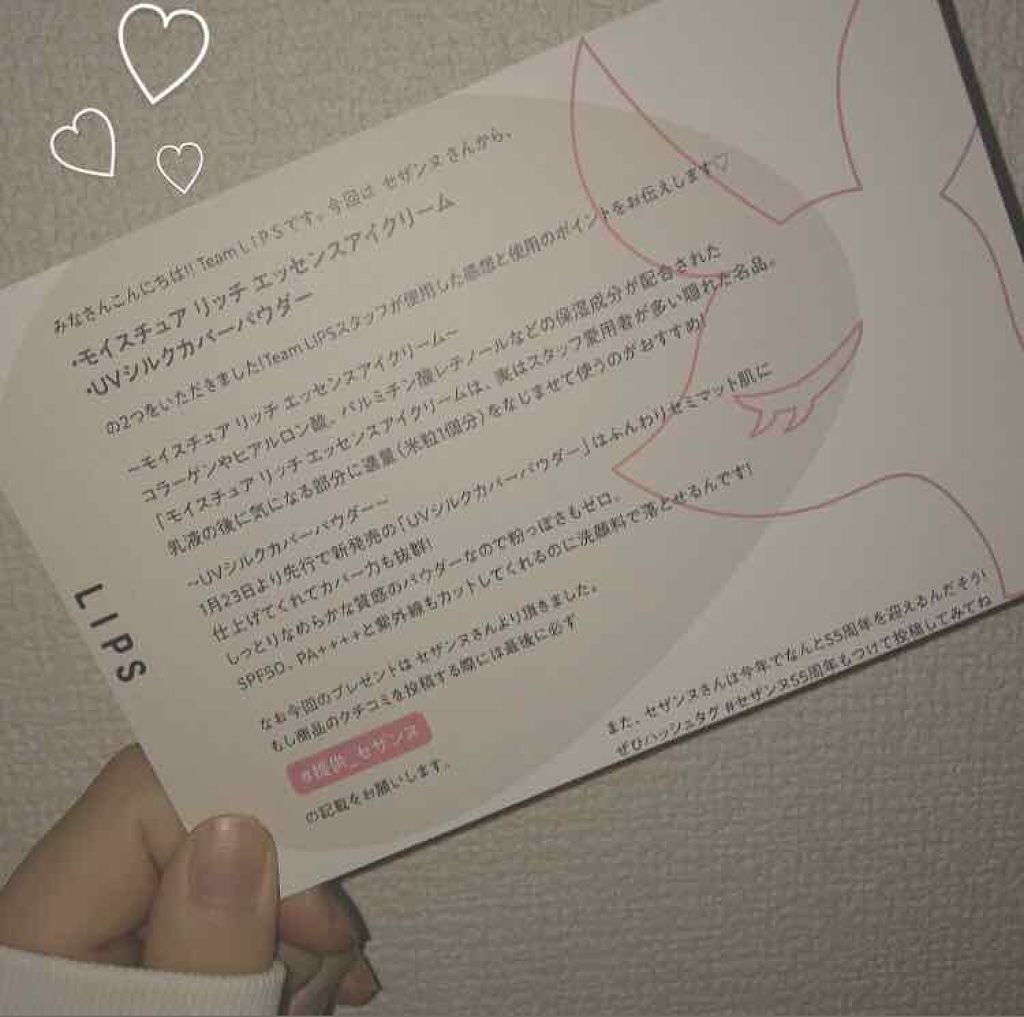 みなさんこんにちは!! Team LIPSです。今回は セザンヌさんから、
・モイスチュア リッチ エッセンスアイクリーム
・UVシルクカバーパウダー
の2つをいただきました!Team LIPSスタッフが使用した感想と使用のポイントをお伝えします♡
~モイスチュア リッチ エッセンスアイクリーム~
コラーゲンやヒアルロン酸、パルミチン酸レチノールなどの保湿成分が配合された
「モイスチュア リッチ エッセンスアイクリームは、実はスタッフ愛用者が多い隠れた名品。
乳液の後に気になる部分に適量(米粒1個分)をなじませて使うのがおすすめ!
~UVシルクカバーパウダー~
1月23日より先行で新発売の「UVシルクカバーパウダー」はふんわりセミマット肌に
仕上げてくれてカバー力も抜群!
しっとりなめらかな質感のパウダーなので粉っぽさもゼロ。
SPF50、PA++++と紫外線もカットしてくれるのに洗顔料で落とせるんです!
なお今回のプレゼントは セザンヌさんより頂きました。
もし商品のクチコミを投稿する際には最後に必ず
#提供_セザンヌ
の記載をお願いします。
LIPS
また、セザンヌさんは今年でなんと55周年を迎えるんだそう!
ぜひハッシュタグ #セザンヌ55周年もつけて投稿してみてね